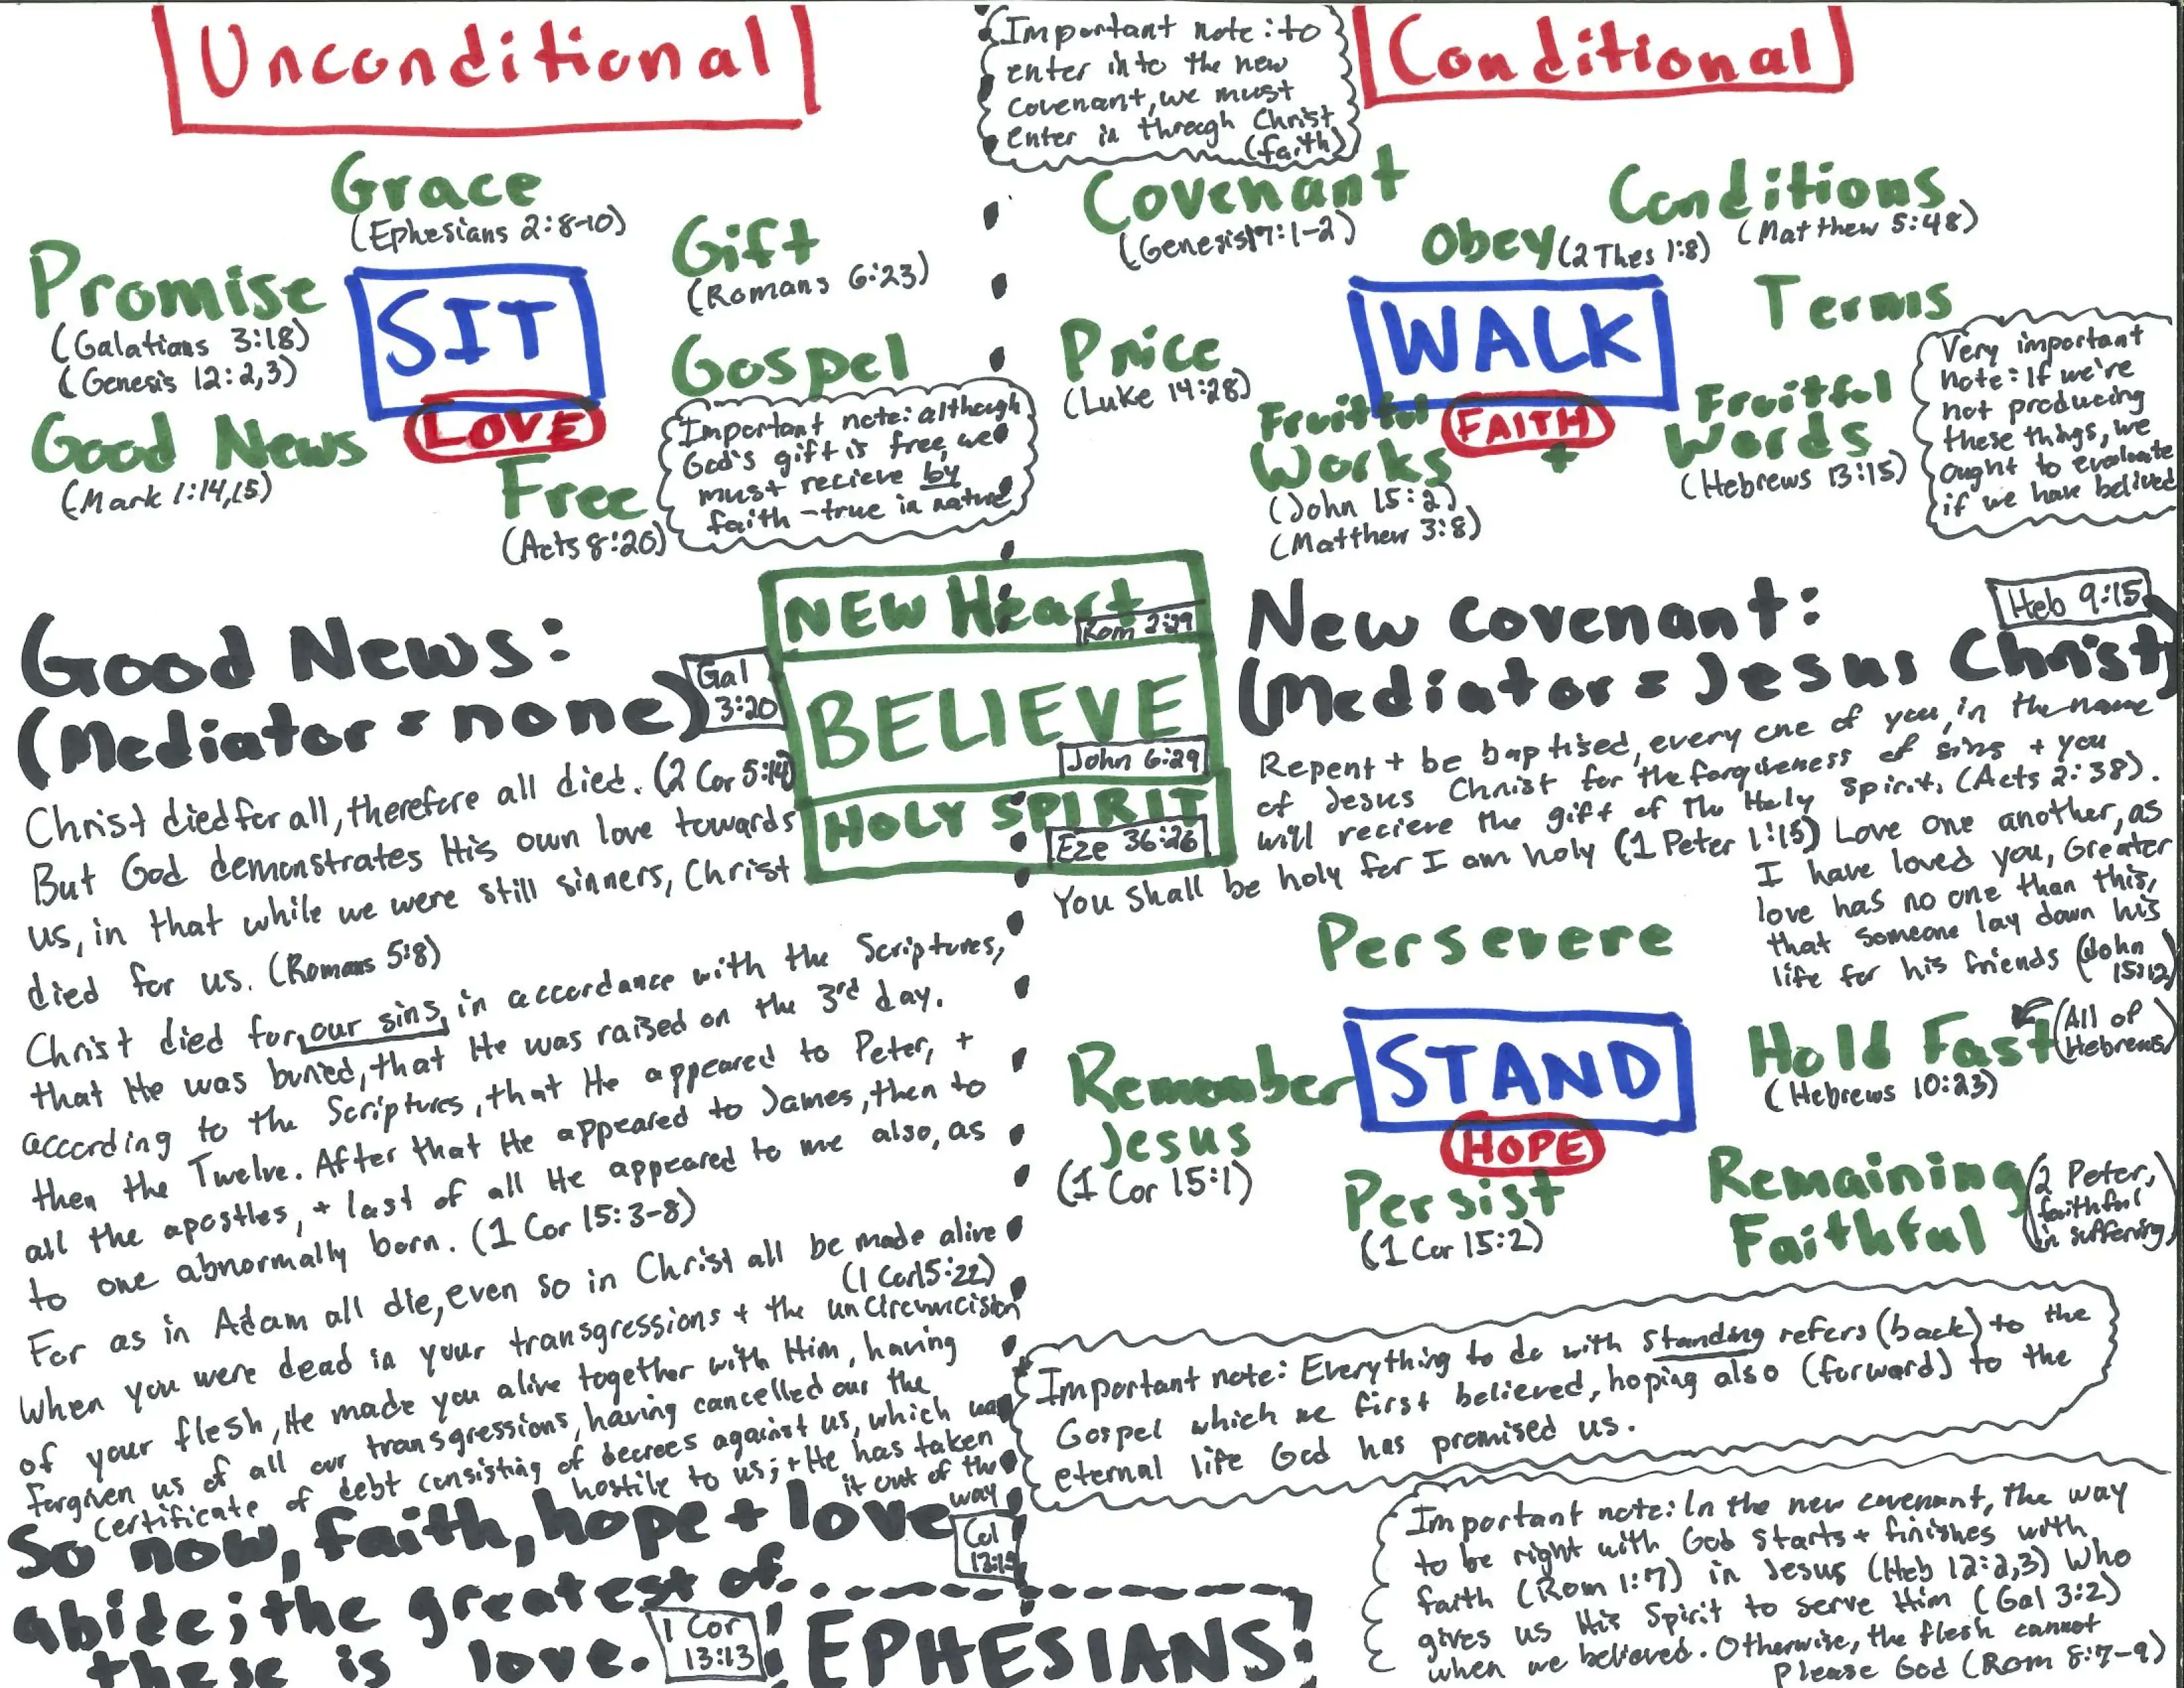 Unconditional
Grace
(Ephesians 2:8-10)
Promise
(Galatians 3:18)
(Genesis 12:2,3)
SIT
LOVE
Gift
(Romans 6:23)
Gospel
Good News
(Mark 1:14,15)
Free
(Acts 8:20)
Important note: although
God's gift is free, we
must recieve by
faith - true in nature
Important note: to
enter into the new
covenant, we must
enter in through Christ
(faith)
Conditional
Covenant
(Genesis 17:1-2)
Conditions
(Matthew 5:48)
Obey (2 Thes 1:8)
WALK
FAITH
Terms
Price
(Luke 14:28)
Fruitful
Works
(John 15:2)
(Matthew 3:8)
+
Fruitful
Words
(Hebrews 13:15)
Very important
note: If we're
not producing
these things, we
ought to evaluate
if we have belived
NEW Heart
Rom 2:29
BELIEVE
John 6:29
HOLY SPIRIT
Eze 36:26
Good News:
(Mediator = none)
Gal
3:20
Christ died for all, therefore all died. (2 Cor 5:14)
But God demonstrates His own love towards
us, in that while we were still sinners, Christ
died for us. (Romans 5:8)
Christ died for our sins, in accordance with the Scriptures,
that He was buried, that He was raised on the 3rd day.
according to the Scriptures, that He appeared to Peter, +
then the Twelve. After that He appeared to James, then to
all the apostles, + last of all He appeared to me also, as
to one abnormally born. (1 Cor 15:3-8)
For as in Adam all die, even so in Christ all be made alive
(1 Cor 15:22)
When you were dead in your transgressions + the uncircumcision
of your flesh, He made you alive together with Him, having
forgiven us of all our transgressions, having cancelled our the
certificate of debt consisting of decrees against us, which was
hostile to us; + He has taken
it out of the
way
Col
So now, faith, hope + love
abide; the greatest of
these is love.
1 Cor
13:13
EPHESIANS
New Covenant:
(Mediator = Jesus Christ)
Heb 9:15
Repent + be baptised, every one of you, in the name
of Jesus Christ for the forgiveness of sins + you
will recieve the gift of the Holy Spirit. (Acts 2:38).
You shall be holy for I am holy (1 Peter 1:15) Love one another, as
I have loved you, Greater
love has no one than this,
that someone lay down his
life for his friends (John
15:12)
Persevere
STAND
HOPE
Remember
Jesus
(1 Cor 15:1)
Persist
(1 Cor 15:2)
Hold Fast
(Hebrews 10:23)
(All of
Hebrews)
Remaining
Faithful
(2 Peter,
faithful
in suffering)
Important note: Everything to do with standing refers (back) to the
Gospel which we first believed, hoping also (forward) to the
eternal life God has promised us.
Important note: In the new covenant, the way
to be right with God starts + finishes with
faith (Rom 1:17) in Jesus (Heb 12:2,3) Who
gives us His Spirit to serve Him (Gal 3:2)
when we believed. Otherwise, the flesh cannot
Please God (Rom 8:7-9)